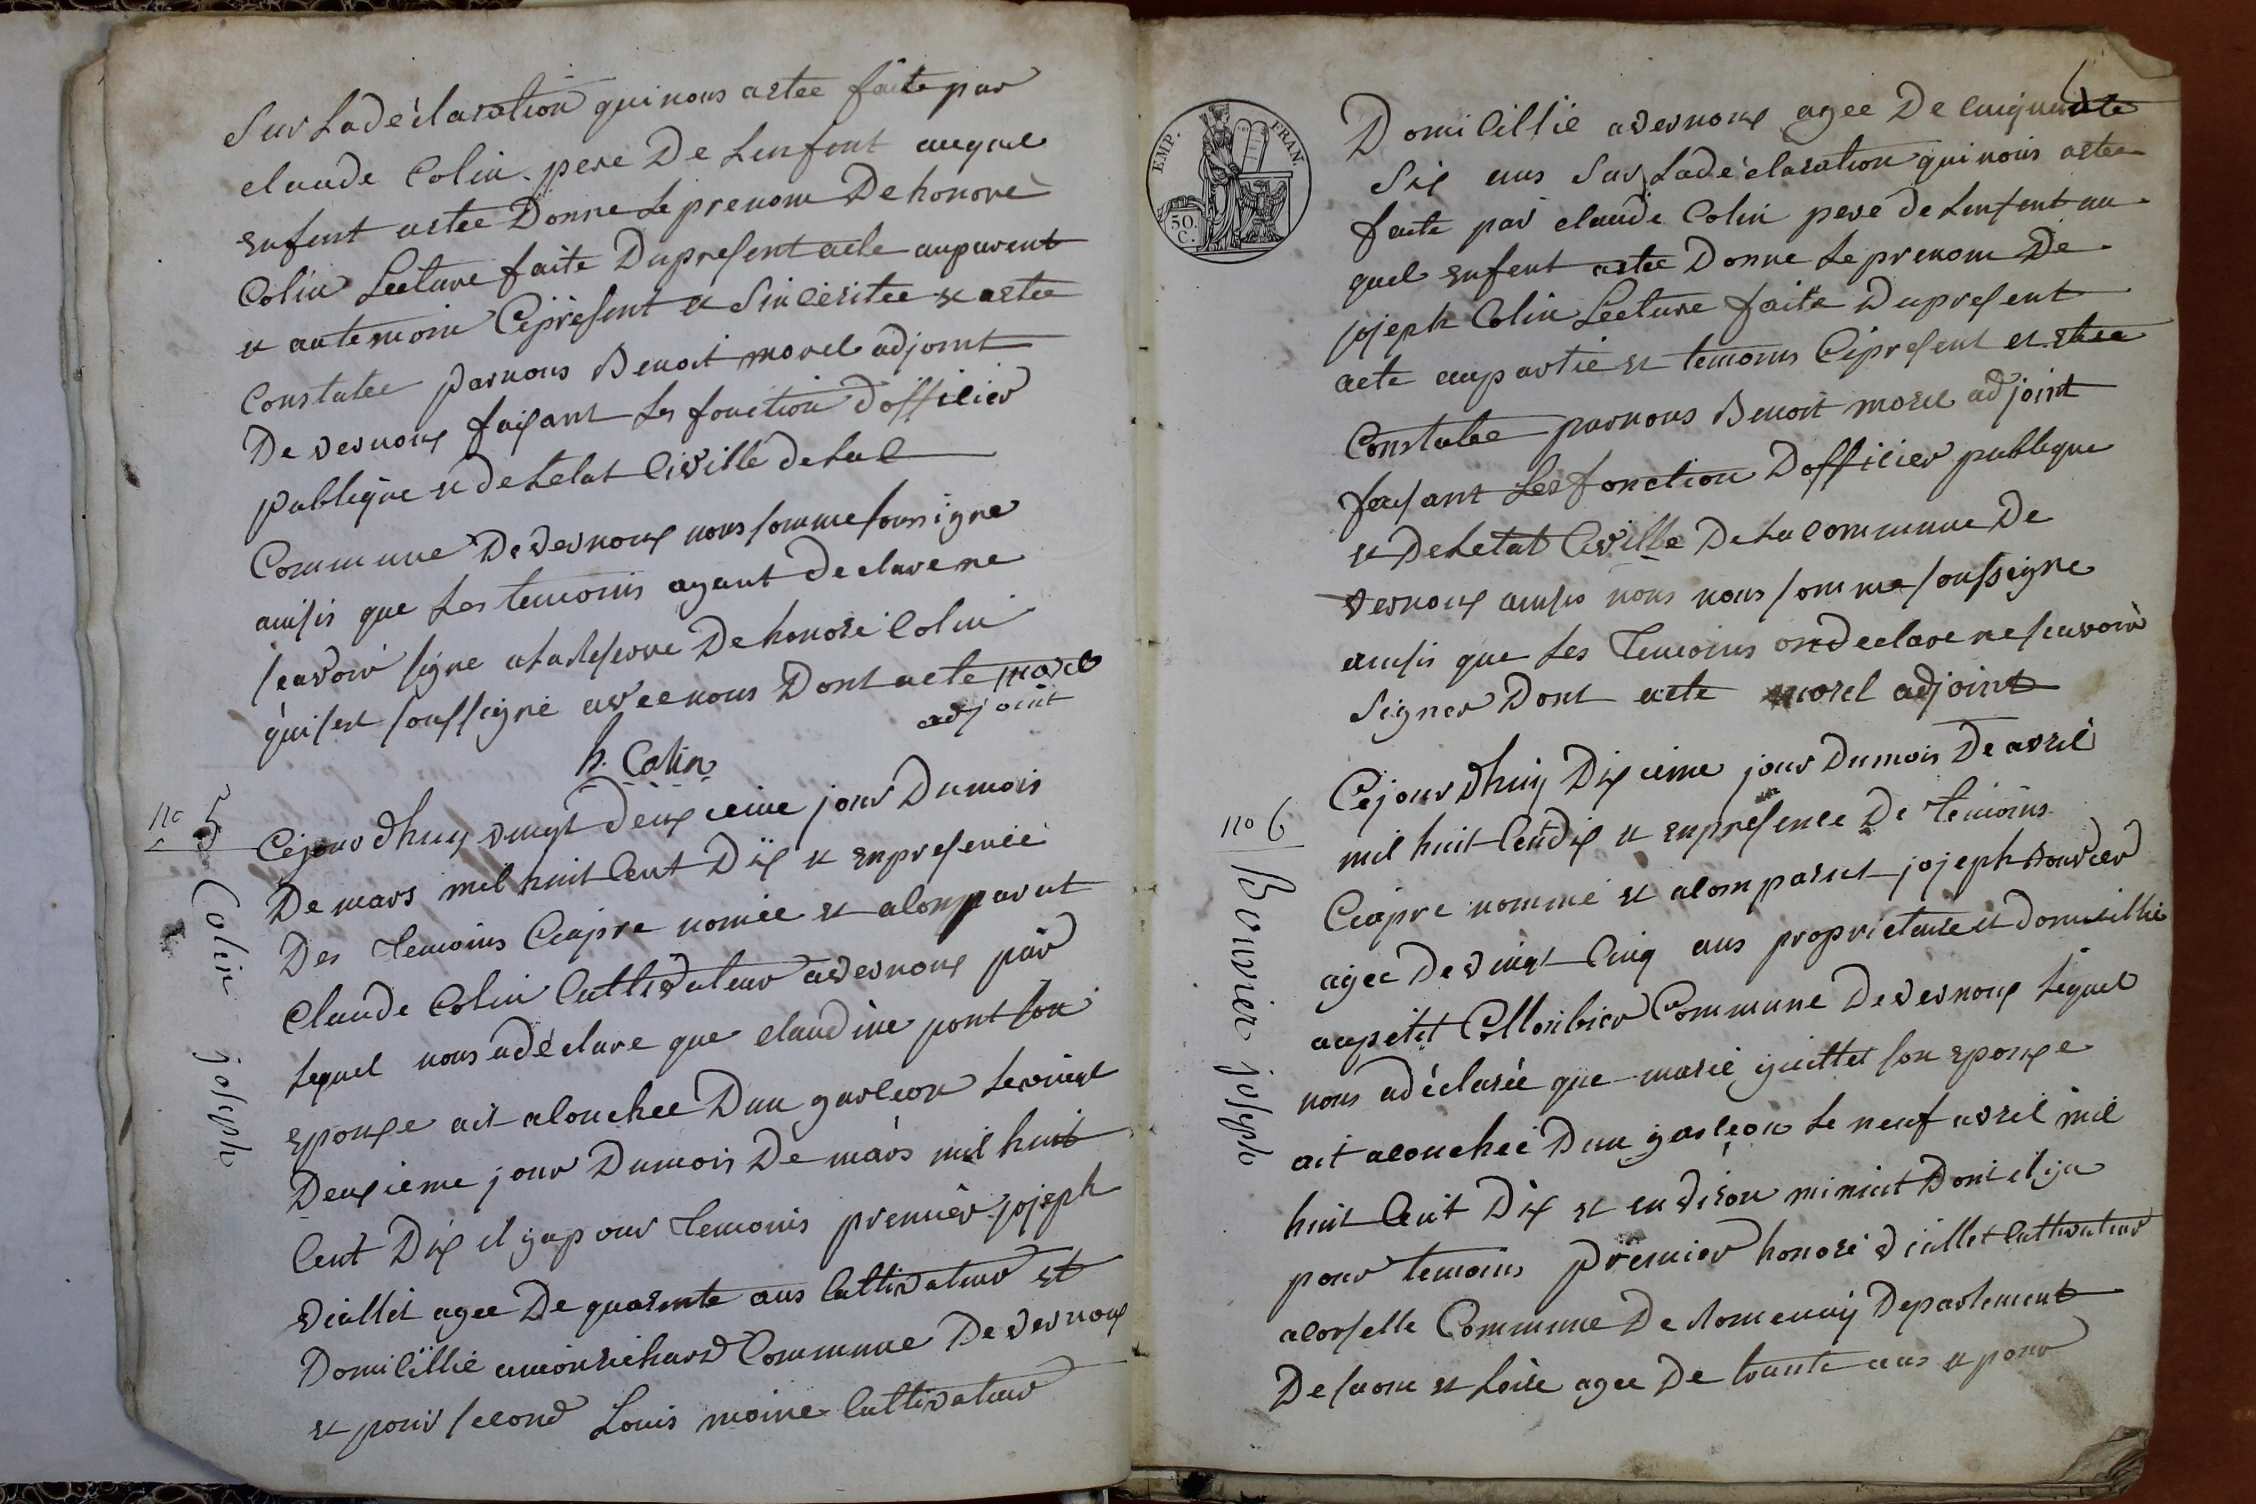 Sur Ladéclaration qui nous aetee faite par
claude Colin pere De Lenfent auquel
enfent aetee Donne Le prenom De honoré
Colin Lecture faite Dupresent acte auparent
et autemoin Cipresent et Sinceritee et aetee
Constatee parnous Benoit morel adjoint
De vernoux faisant Les fonction d'officier
publique et de Letat Civille de La C
Commune De vernoux nous somme soussigne
ainsis que Les temoins ayant declare ne
scavoir signe a La Reserve De honoré Colin
qui sest soussigné avec nous Dont acte morel
adjoint
h. Colin
no 5
Colin joseph
Cejourdhuy vingt deuxieme jour Dumois
De mars mil huit Cent Dix et en presence
Des temoins Ciapre nomée et a Comparut
Claude Colin Cultivateur a vernoux par
Lequel nous adéclare que claudine pont son
epouse ait acouchee Dun garcon Le vingt
Deuxieme jour Dumois De mars mil huit
Cent Dix il ya pour temoins premier jojeph
viallet agee De quarente ans Cultivateur et
Domicillié a monrichard Commune De vernoux
et pour second Louis moine Cultivateur
EMP. FRAN.
50 C.
6
Domicillié a vernoux agee De Cinquente
Six ans Sur Ladéclaration qui nous aetee
faite par claude Colin pere de Lenfent au
quel enfent aetee Donne Le prenom De
jojeph Colin Lecture faite Dupresent
acte aupartie et temoins Cipresent et etee
Constatee parnous Benoit morel adjoint
faisant Les fonction D'officier publique
et De Letat Civille De La commune De
vernoux ainsis nous nous somme soussigne
ainsis que Les temoins on declare ne scavoir
Signer Dont acte morel adjoint
no 6
Bouvier joseph
Cejourdhuy Dixieme jour Dumois De avril
mil huit Cendix et enpresence De temoins
Ciapre nommé et a Comparut jojeph Bouvier
agee De vingt Cinq ans proprietaire et domicillié
aupetit Colloribier Commune De vernoux Lequel
nous adéclarée que marie guillet son epouse
ait acouchée Dun garcon Le neuf avril mil
huit Cent Dix et en viron minuit Dont il ya
pour temoins premier honoré viallet Cultivateur
a Corselle Commune De Romenay Departement
De saone et Loire agee De trante ans et pour